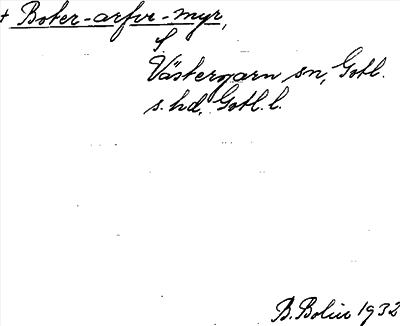 + Boter-arfve-myr,
f
Västergarn sn, Gotl.
s. hd, Gotl. l.
B. Bolin 1932